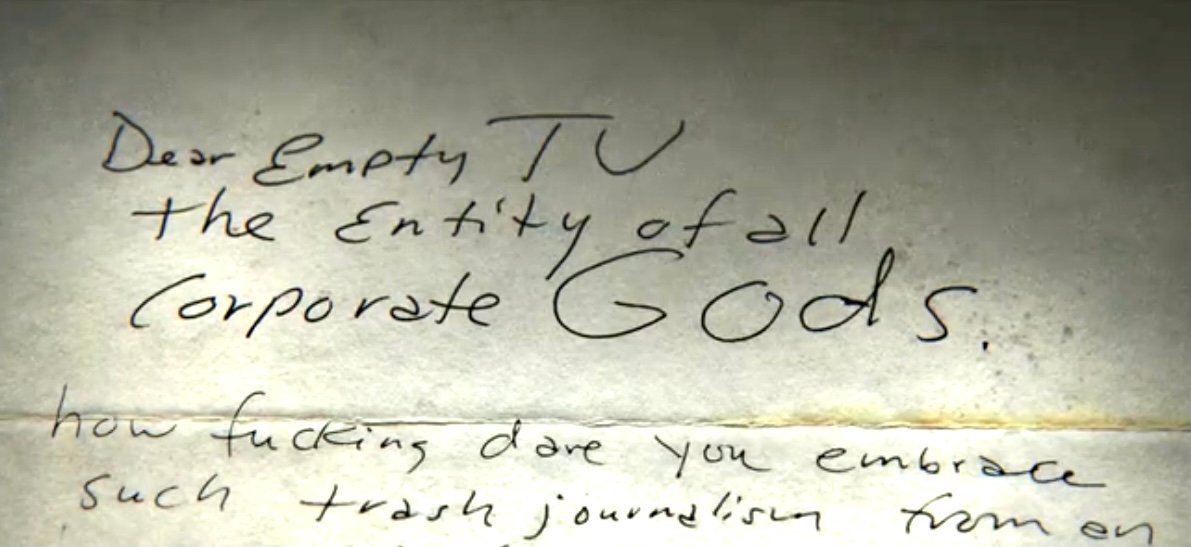 Dear Empty TV
the Entity of all
Corporate Gods.
how fucking dare you embrace
such trash journalism from an